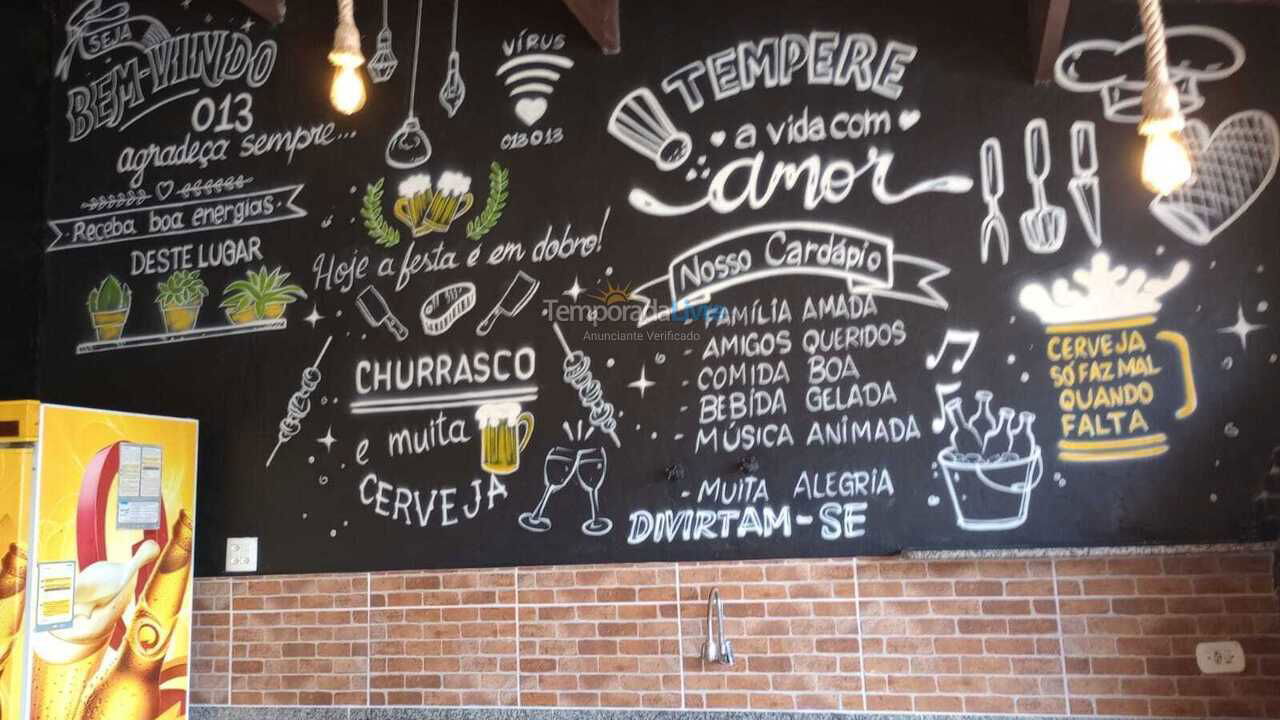 SEJA
BEM-VINDO
013
agradeça sempre...
Receba boa energias.
DESTE LUGAR
VÍRUS
013013
Hoje a festa é em dobro!
CHURRASCO
e muita
CERVEJA
TEMPERE
a vida com
amor
Nosso Cardápio
- FAMÍLIA AMADA
- AMIGOS QUERIDOS
- COMIDA BOA
- BEBIDA GELADA
- MÚSICA ANIMADA
- MUITA ALEGRIA
DIVIRTAM-SE
CERVEJA
SÓ FAZ MAL
QUANDO
FALTA
TemporadaLivre
Anunciante Verificado